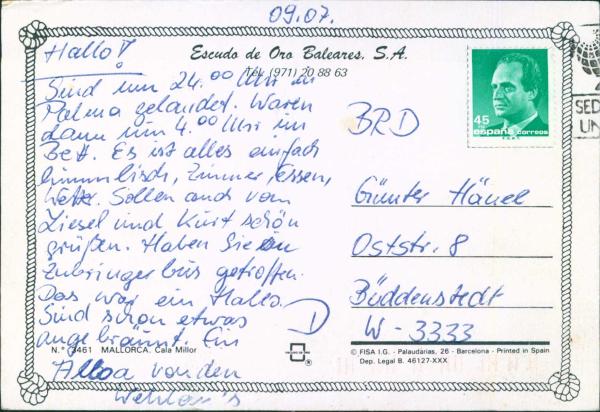 09.07.
Escudo de Oro Baleares, S.A.
Tel. (971) 20 88 63
Hallo!
Sind um 24.00 Uhr in
Palma gelandet. Waren
dann um 4.00 Uhr im
Bett. Es ist alles einfach
himmlisch, Zimmer, Essen,
Wetter. Sollen auch von
Liesel und Kurt schön
grüßen. Haben Sie in
Zubringerbus getroffen.
Das war ein Hallo.
Sind schon etwas
angebräunt. Ein
Alloa von den
45
españa correos
SED
UN
BRD
Günter Hänel
Oststr. 8
Büddenstedt
W-3333
D
N.° 3461 MALLORCA. Cala Millor
© FISA I.G. - Palaudarias, 26 - Barcelona - Printed in Spain
Dep. Legal B. 46127-XXX